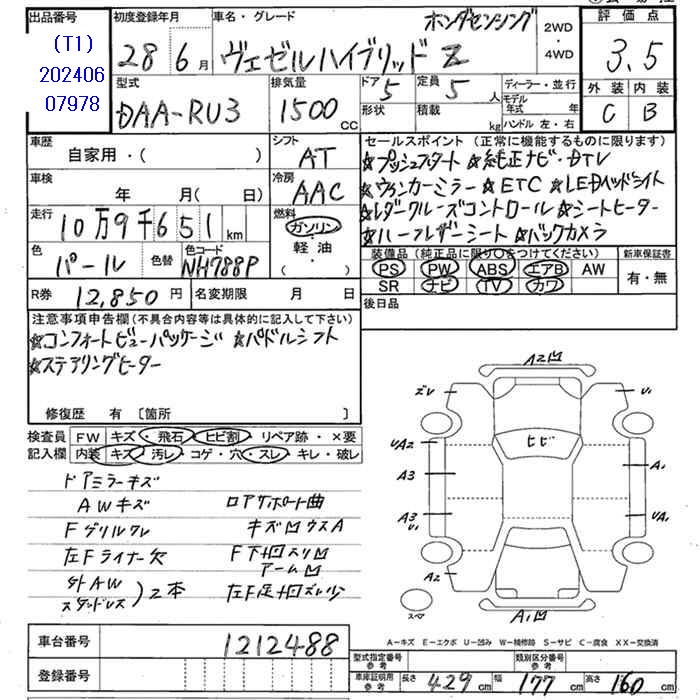 出品番号 初度登録年月 車名・グレード ホンダセンシング 2WD 評価点
(T1) 28年 6月 ヴェゼルハイブリッド Z ・4WD 3.5
202406 型式 排気量 ドア 定員 ディーラー・並行 外装 内装
07978 DAA-RU3 1500CC 5 5人 モデル年式 年 C B
形状 積載 kg ハンドル 左・右
車歴 シフト セールスポイント (正常に機能するものに限ります)
自家用・( ) AT ☆プッシュスタート ☆純正ナビ・DTV
車検 冷房 ☆ウィンカーミラー ☆ETC ☆LEDヘッドライト
年 月( 日) AAC ☆レダークルーズコントロール ☆シートヒーター
走行 燃料 ☆ハーフレザーシート ☆バックカメラ
10万9千651km ガソリン
色 色替 色コード 軽油 装備品(純正品に限り○をつけてください) 新車保証書
パール NH788P ・( ) PS PW ABS エアB AW 有・無
SR ナビ TV カワ
R券 12,850円 名変期限 月 日 後日品
注意事項申告欄(不具合内容等は具体的に記入して下さい)
☆コンフォートビューパッケージ ☆パドルシフト
☆ステアリングヒーター
修復歴 有 〔箇所 〕
検査員 FW キズ・飛石・ヒビ割・リペア跡・×要
記入欄 内装 キズ・汚レ・コゲ・穴・スレ・キレ・破レ
ドアミラーキズ
AWキズ ロアサポート曲
Fグリルワレ キズ凹ウスA
左Fライナー欠 F下回スリ凹
アーム凹
外AW
スタッドレス )2本 左F足廻ズレ少
A2凹
ズレ U1
ヒビ
UA2
A3 A1
A3 UA1
U1
A2
スペア A1凹
車台番号 1212488
A-キズ E-エクボ U-凹み W-補修跡 S-サビ C-腐食 XX-交換済
登録番号 型式指定番号 参考 類別区分番号 参考
車庫証明用 参考 長さ 429cm 幅 177cm 高さ 160cm